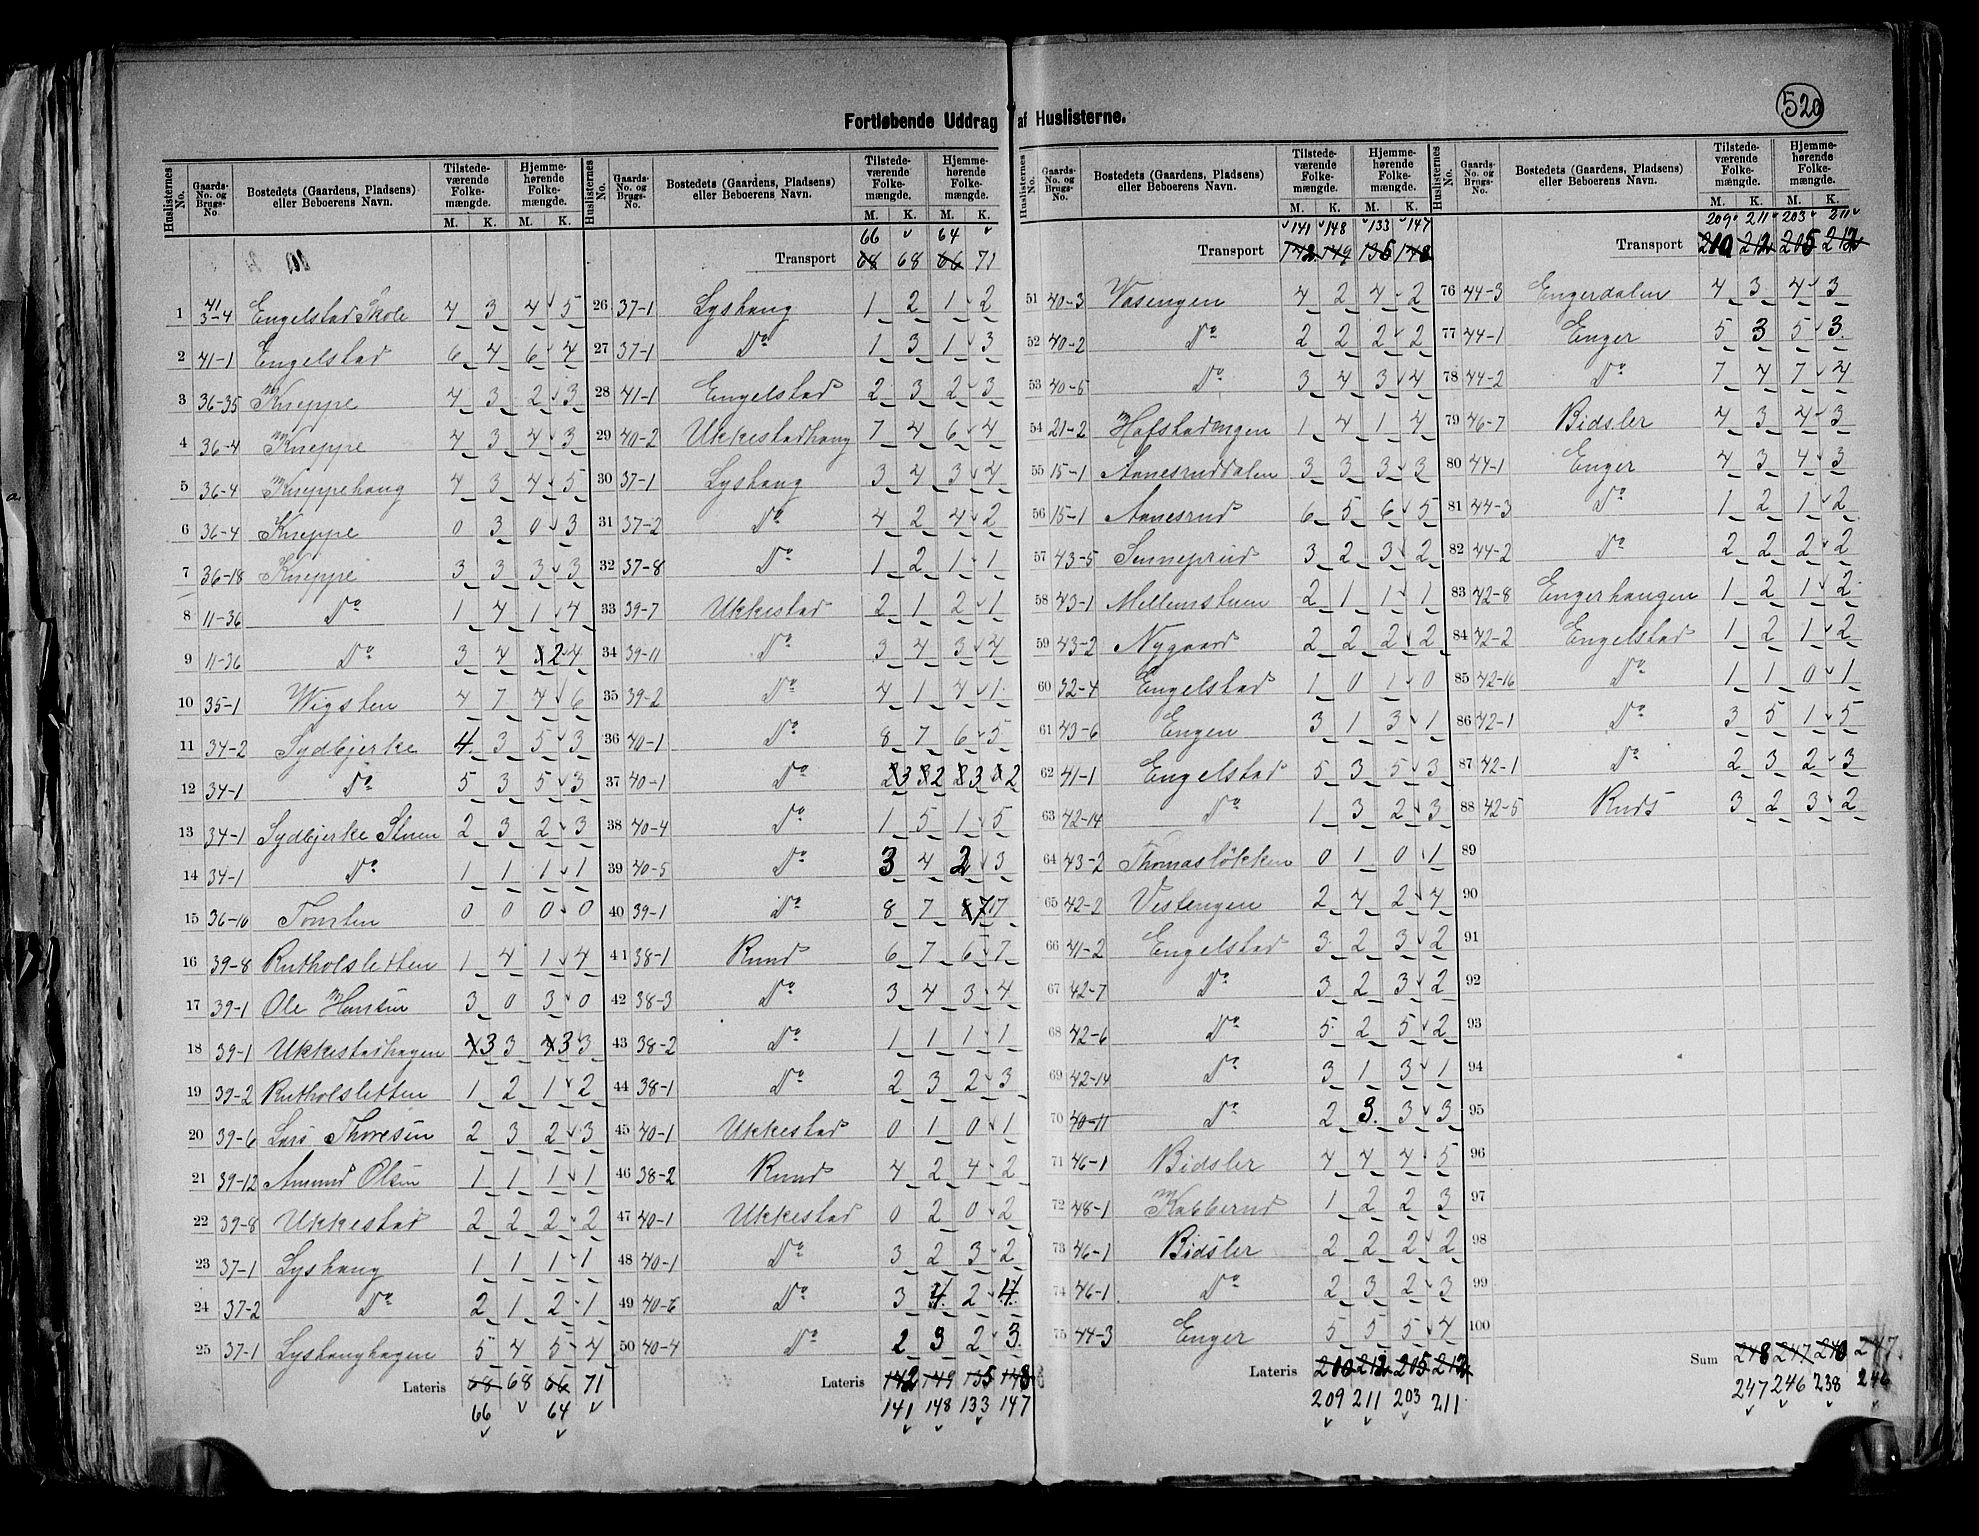 520
Fortløbende Uddrag af Huslisterne.
Huslisternes No. | Gaards-No. og Brugs-No. | Bostedets (Gaardens, Pladsens) eller Beboerens Navn. | Tilstedeværende Folkemængde. M. K. | Hjemmehørende Folkemængde. M. K.
1 41-3-4 Engelstad Skole 4 3 4 5
2 41-1 Engelstad 6 4 6 4
3 36-35 Kneppe 4 3 2 3
4 36-4 Kneppe 4 3 4 3
5 36-4 Kneppehaug 4 3 4 5
6 36-4 Kneppe 0 3 0 3
7 36-18 Kneppe 3 3 3 3
8 11-36 Do 1 4 1 4
9 11-36 Do 3 4 2 4
10 35-1 Wigsten 4 7 4 6
11 34-2 Sydbjerke 4 3 5 3
12 34-1 Do 5 3 5 3
13 34-1 Sydbjerke Stuen 2 3 2 3
14 34-1 Do 1 1 1 1
15 36-10 Tomten 0 0 0 0
16 39-8 Rutholsletten 1 4 1 4
17 39-1 Ole Hansen 3 0 3 0
18 39-1 Ukkestadhagen 4 3 3 4 3 3
19 39-2 Rutholsletten 1 2 1 2
20 39-6 Lars Thoresen 2 3 2 3
21 39-12 Amund Olsen 1 1 1 1
22 39-8 Ukkestad 2 2 2 2
23 37-1 Lyshaug 1 1 1 1
24 37-2 Do 2 1 2 1
25 37-1 Lyshaughagen 5 4 5 4
Lateris 68 68 66 71
66 64
66 64
Transport 68 68 66 71
26 37-1 Lyshaug 1 2 1 2
27 37-1 Do 1 3 1 3
28 41-1 Engelstad 2 3 2 3
29 40-2 Ukkestadhaug 7 4 6 4
30 37-1 Lyshaug 3 4 3 4
31 37-2 Do 4 2 4 2
32 37-8 Do 1 2 1 1
33 39-7 Ukkestad 2 1 2 1
34 39-11 Do 3 4 3 4
35 39-2 Do 4 1 4 1
36 40-1 Do 8 7 6 5
37 40-1 Do 3 2 3 2
38 40-4 Do 1 5 1 5
39 40-5 Do 3 4 2 3
40 39-1 Do 8 7 8 7 7
41 38-1 Rund 6 7 6 7
42 38-3 Do 3 4 3 4
43 38-2 Do 1 1 1 1
44 38-1 Do 2 3 2 3
45 40-1 Ukkestad 0 1 0 1
46 38-2 Rund 4 2 4 2
47 40-1 Ukkestad 0 2 0 2
48 40-1 Do 3 2 3 2
49 40-6 Do 3 4 2 4
50 40-4 Do 2 3 2 3
Lateris 142 149 135 148
141 148 133 147
141 148 133 147
Transport 142 149 135 148
51 40-3 Vasengen 4 2 4 2
52 40-2 Do 2 2 2 2
53 40-5 Do 3 4 3 4
54 21-2 Hofstadengen 1 4 1 4
55 15-1 Aanesruddalen 3 3 3 3
56 15-1 Aanesrud 6 5 6 5
57 43-5 Sennerud 3 2 3 2
58 43-1 Mellemstuen 2 1 1 1
59 43-2 Nygaard 2 2 2 2
60 32-4 Engelstad 1 0 1 0
61 43-6 Engen 3 1 3 1
62 41-1 Engelstad 5 3 5 3
63 42-14 Do 1 3 2 3
64 43-2 Thomasløkken 0 1 0 1
65 42-2 Vestengen 2 4 2 4
66 41-2 Engelstad 3 2 3 2
67 42-7 Do 3 2 3 2
68 42-6 Do 5 2 5 2
69 42-14 Do 3 1 3 1
70 40-11 Do 2 3 3 3
71 46-1 Bidsler 4 4 4 5
72 48-1 Kabberud 1 2 2 3
73 46-1 Bidsler 2 2 2 2
74 46-1 Do 2 3 2 3
75 44-3 Enger 5 5 5 4
Lateris 210 212 205 212
209 211 203 211
209 211 203 211
Transport 210 212 205 212
76 44-3 Engerdalen 4 3 4 3
77 44-1 Enger 5 3 5 3
78 44-2 Do 7 4 7 4
79 46-7 Bidsler 4 3 4 3
80 44-1 Enger 4 3 4 3
81 44-3 Do 1 2 1 2
82 44-2 Do 2 2 2 2
83 42-8 Engerhaugen 1 2 1 2
84 42-2 Engelstad 1 2 1 2
85 42-16 Do 1 1 0 1
86 42-1 Do 3 5 1 5
87 42-1 Do 2 3 2 3
88 42-5 Ruds 3 2 3 2
89
90
91
92
93
94
95
96
97
98
99
100
Sum 248 247 240 247
247 246 238 246